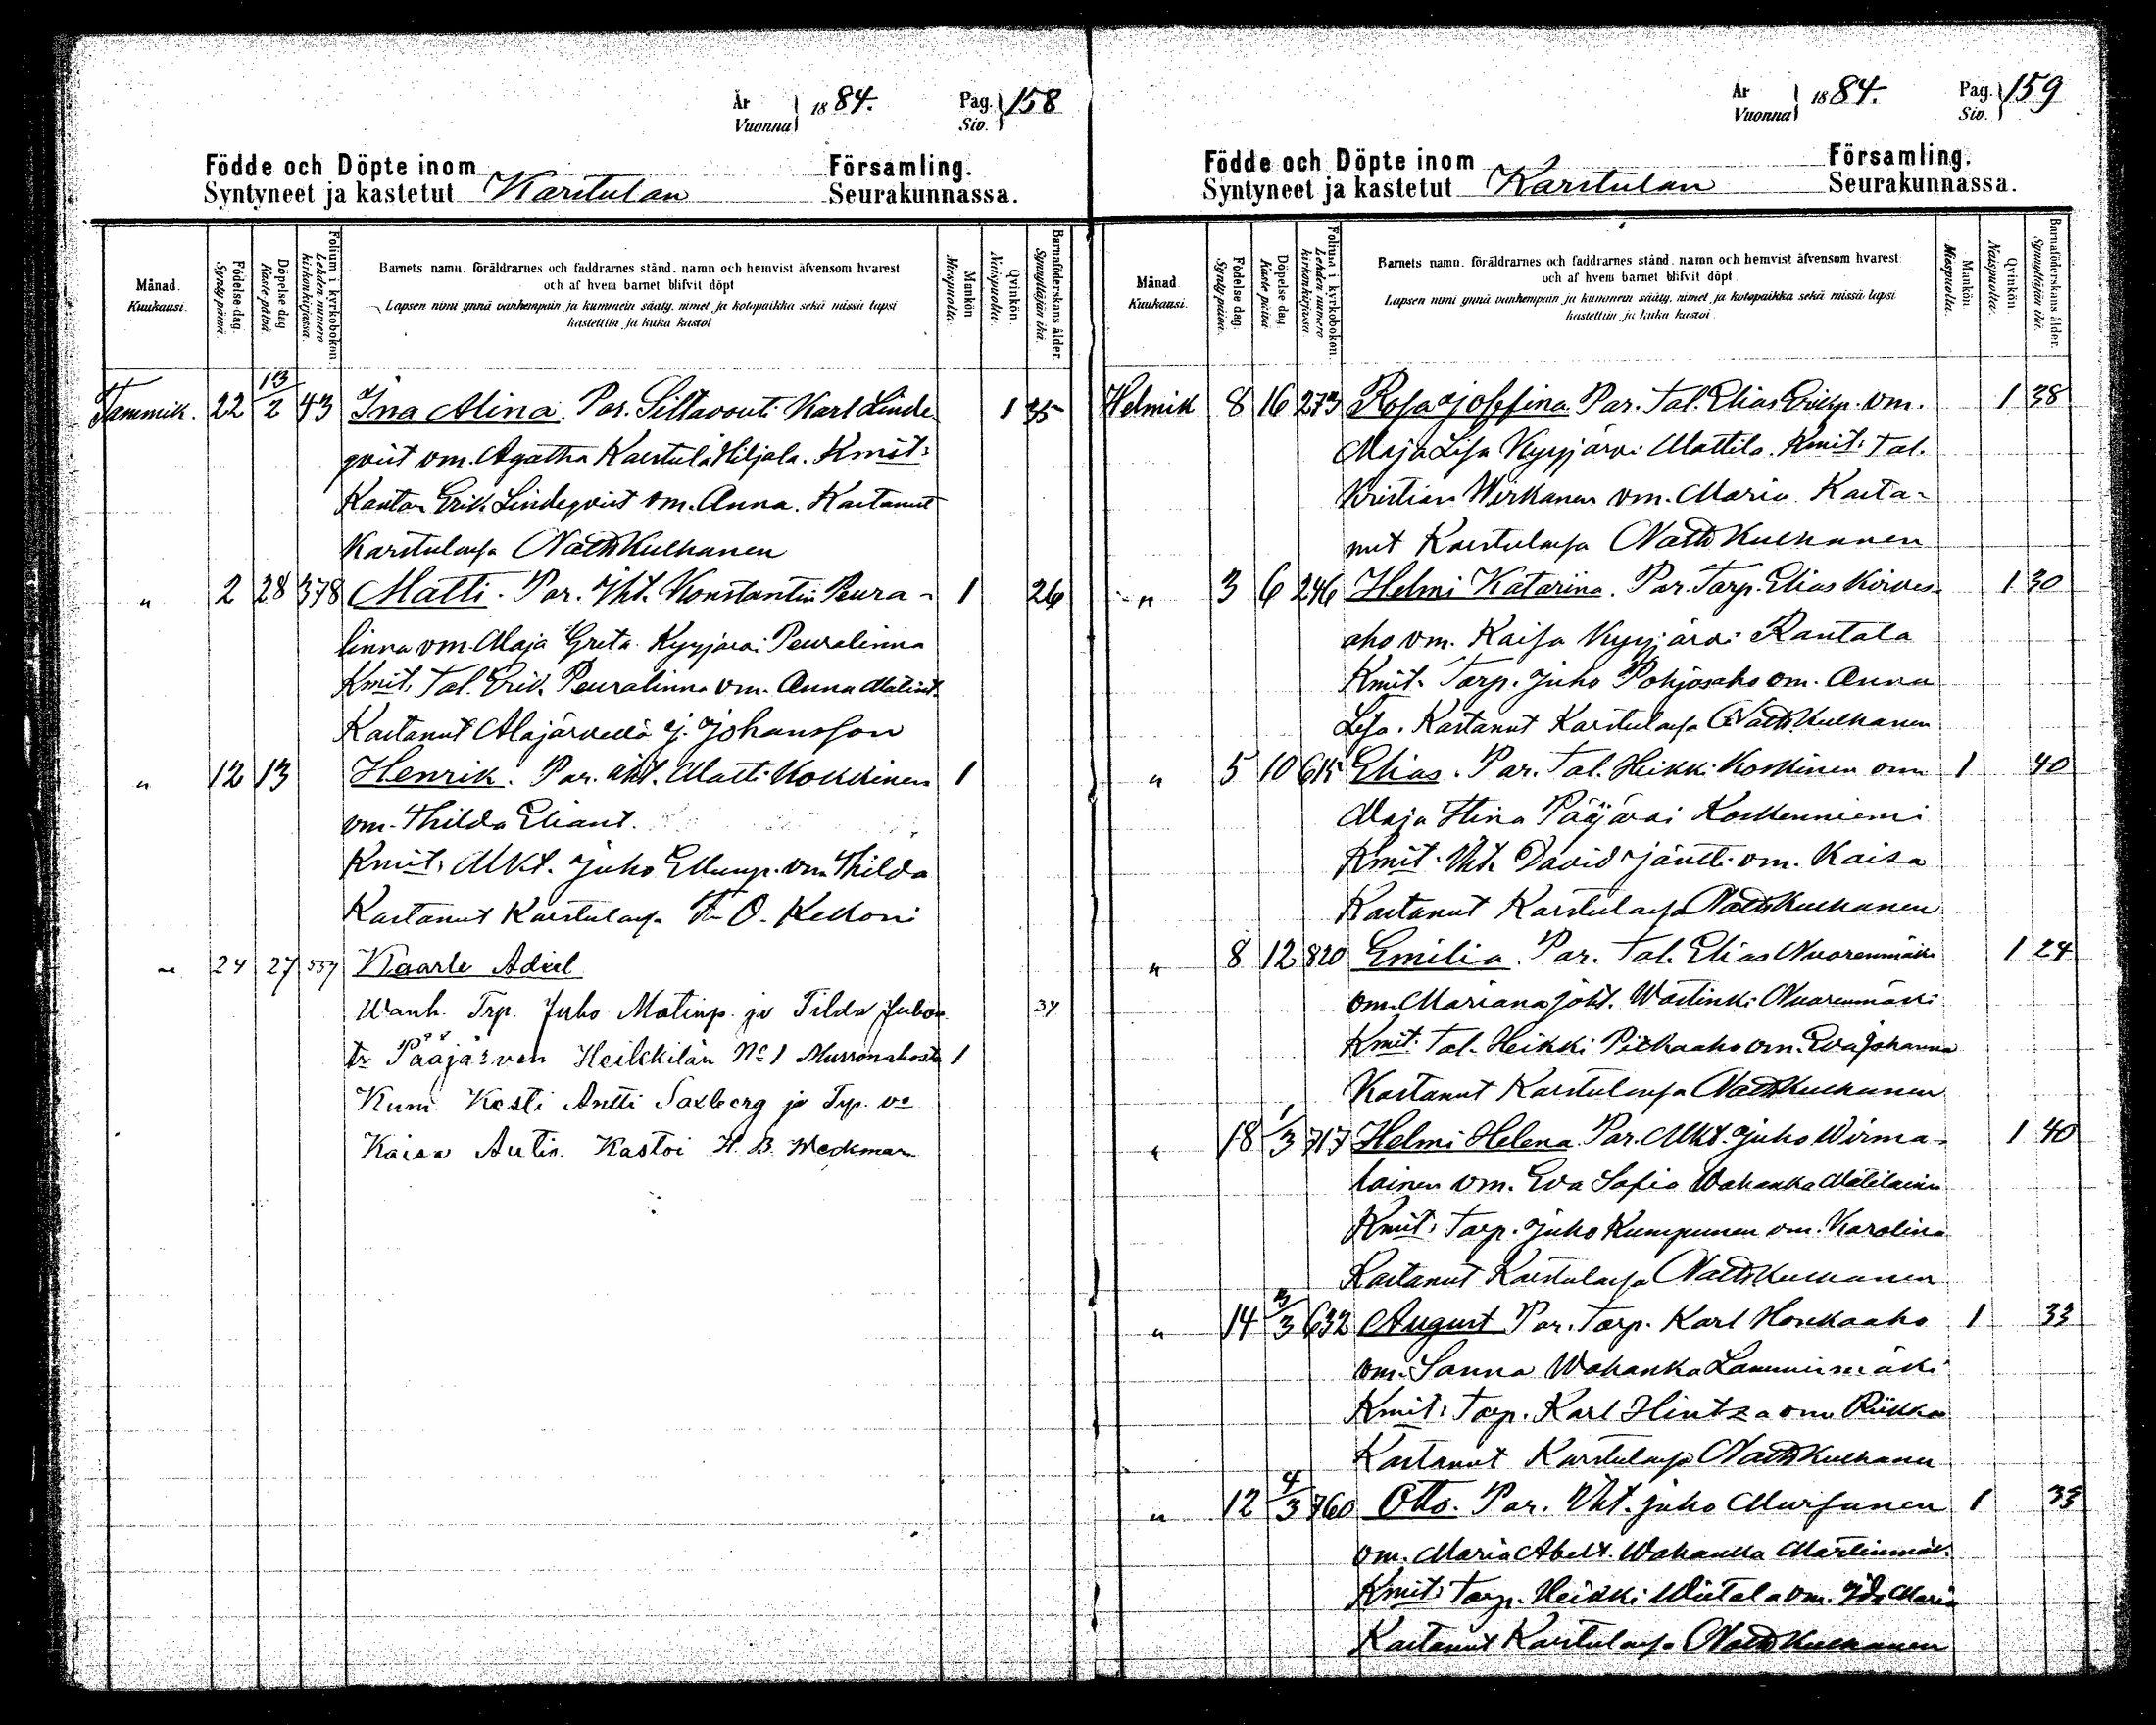 År
Vuonna
1884.
Pag.
Siv.
158
Födde och Döpte inom
Syntyneet ja kastetut
Karstulan
Församling.
Seurakunnassa.
Månad.
Kuukausi.
Födelse dag.
Synty-päivä.
Döpelse dag
Kaste-päivä.
Folium i kyrkoboken.
Lehden numero
kirkonkirjassa.
Barnets namn, föräldrarnes och faddrarnes stånd, namn och hemvist äfvensom hvarest
och af hvem barnet blifvit döpt
Lapsen nimi ynnä vanhempain ja kummein sääty, nimet ja kotopaikka sekä missä lapsi
kastettiin ja kuka kastoi
Mankön
Miespuolta.
Qvinkön.
Naispuolta.
Barnaföderskans ålder.
Synnyttäjän ikä.
Tammik. 22 13/2 43 Ina Alina. Par. Siltavouti Karl Linde 1 35
qvist vm. Agatha Karstula Hiljala. Kmit:
Kantor Erik Lindeqvist vm. Anna. Kastanut
Karstulassa Natti Kulhanen
" 2 28 378 Matti. Par. Iht. Konstantin Peura- 1 26
linna vm. Maja Greta Kyyjärvi Peuralinna
Kmit. Tal. Erik Peuralinna vm. Anna Matint.
Kastanut Alajärvellä J. Johansson
" 12 13 Henrik. Par. Iht. Matti Kokkinen 1
vm. Thilda Eliant.
Kmit: Mkt. Juho vm. Thilda
Kastanut Karstulassa O. Kekoni
" 24 27 557 Kaarle Adiel
Wanh. Trp. Juho Matinp. ja Tilda Juhon 34
tr Pääjärven Heikkilän No 1 Murronahosta 1
Kum Kesti Antti Saxberg ja Trp. vo
Kaisa Kastoi H. B. Weckman
År
Vuonna
1884.
Pag.
Siv.
159
Födde och Döpte inom
Syntyneet ja kastetut
Karstulan
Församling.
Seurakunnassa.
Månad
Kuukausi.
Födelse dag.
Synty päivä.
Döpelse dag
Kaste päivä
Folium i kyrkoboken.
Lehden numero
kirkonkirjassa
Barnets namn, föräldrarnes och faddrarnes stånd, namn och hemvist äfvensom hvarest
och af hvem barnet blifvit döpt
Lapsen nimi ynnä vanhempain ja kummein sääty, nimet ja kotopaikka sekä missä lapsi
kastettiin ja kuka kastoi
Mankön.
Miespuolta.
Qvinkön.
Naispuolta.
Barnaföderskans ålder.
Synnyttäjän ikä.
Helmik 8 16 273 Rosa Joseffina Par. Tal. Elias Erikp. vm. 1 38
Maja Lisa Kyyjärvi Mattila. Kmit: Tal.
Kristian Wirkanen vm. Maria. Kasta-
nut Karstulassa Natti Kulhanen
" 3 6 246 Helmi Katarina. Par. Torp. Elias Kirves- 1 30
aho vm. Kaisa Kyyjärvi Rantala
Kmit. Torp. Juho Pohjosaho vm. Anna
Lisa. Kastanut Karstulassa Natti Kulhanen
" 5 10 615 Elias. Par. Tal. Heikki Koskinen vm 1 40
Maja Stina Pääjärvi Koskenniemi
Kmit. Iht. David Jäntti vm. Kaisa
Kastanut Karstulassa Natti Kulhanen
" 8 12 820 Emilia. Par. Tal. Elias Nuorenmäki 1 24
vm. Mariana Joht. Wastinki Nuorenmäki
Kmit. Tal. Heikki Pilkaaho vm. Eva Johanna
Kastanut Karstulassa Natti Kulhanen
" 18 1/3 717 Helmi Helena Par. Mkt. Juho Wirma- 1 40
lainen vm. Eva Sofia Wahanka Mätiläinen
Kmit: Torp. Juho Kumpunen vm. Karolina
Kastanut Karstulassa Natti Kulhanen
" 14 3/3 632 August Par. Torp. Karl Honkaaho 1 33
vm. Sanna Wahanka Lamminmäki
Kmit: Torp. Karl Hintza vm Riikka
Kastanut Karstulassa Natti Kulhanen
" 12 4/3 760 Otto. Par. Iht. Juho Mursunen 1 33
vm. Maria Abelt. Wahanka Martinmäk.
Kmit: Torp. Heikki Wiitala vm. Ida Maria
Kastanut Karstulassa Natti Kulhanen